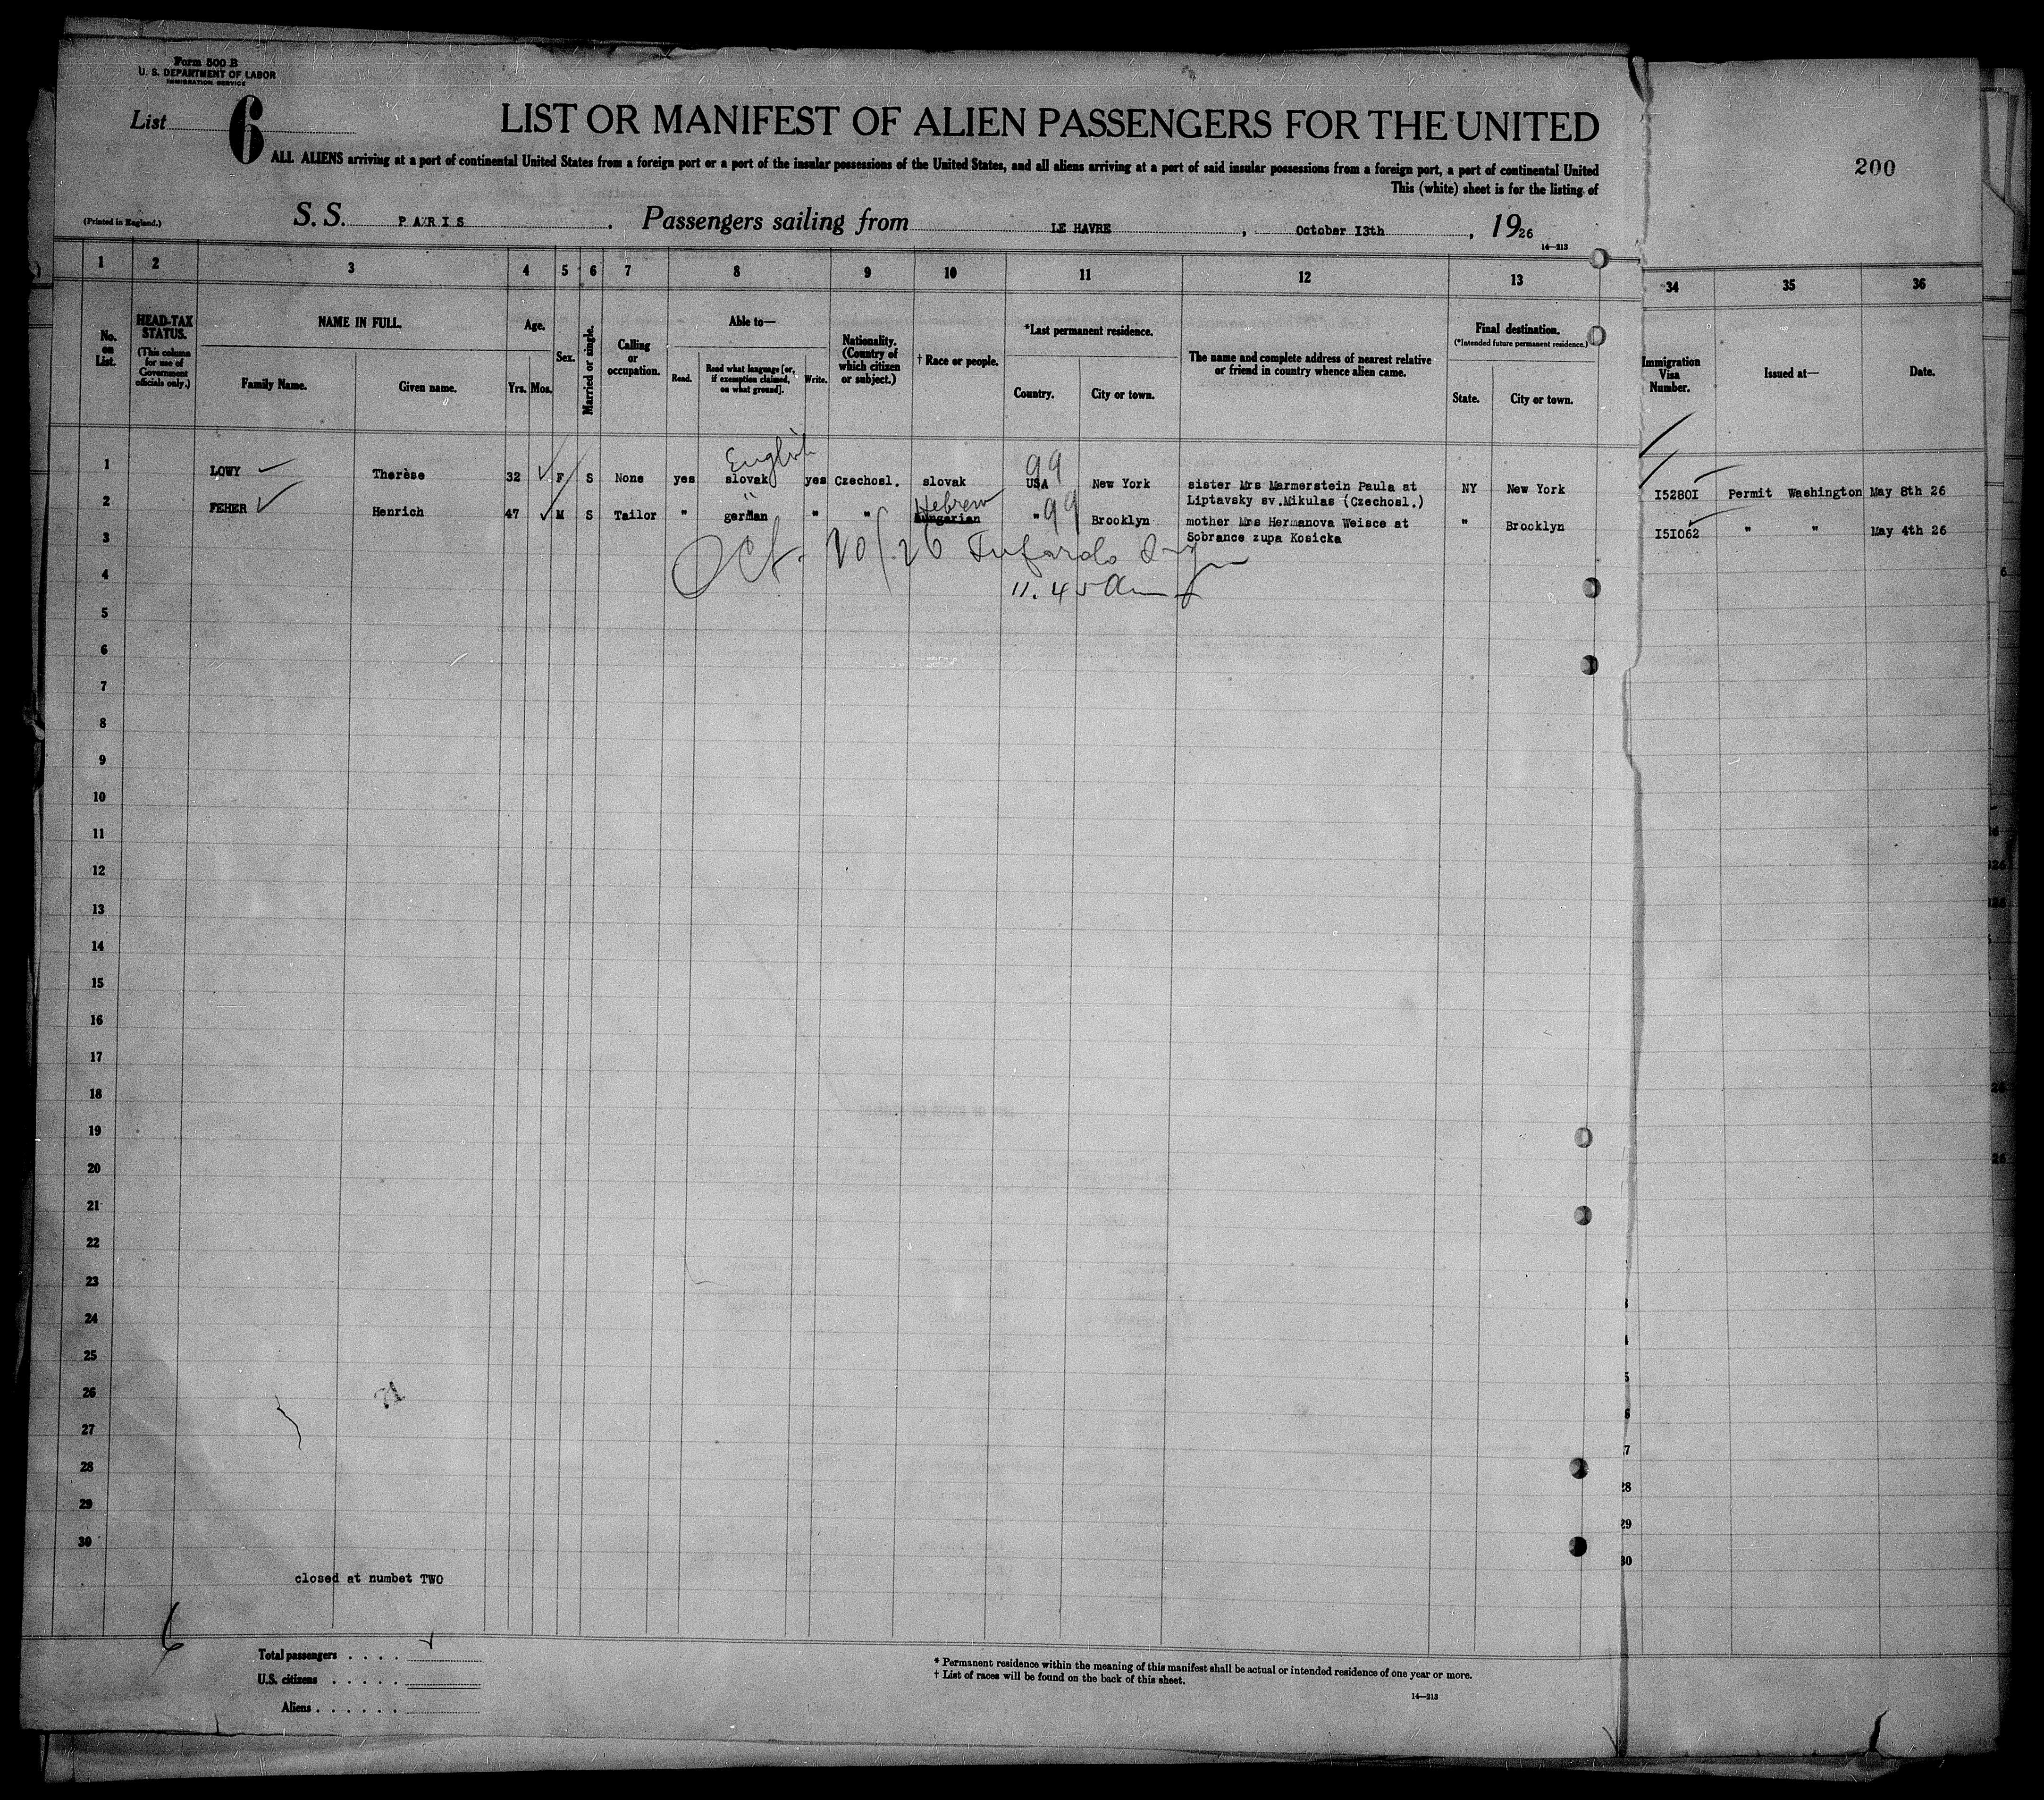 Form 500 B
U. S. DEPARTMENT OF LABOR
IMMIGRATION SERVICE
List 6
LIST OR MANIFEST OF ALIEN PASSENGERS FOR THE UNITED
200
ALL ALIENS arriving at a port of continental United States from a foreign port or a port of the insular possessions of the United States, and all aliens arriving at a port of said insular possessions from a foreign port, a port of continental United
This (white) sheet is for the listing of
(Printed in England.)
S. S. PARIS. Passengers sailing from LE HAVRE, October I3th, 1926
14—213
1 2 3 4 5 6 7 8 9 10 11 12 13 34 35 36
No. on List.
HEAD-TAX STATUS.
(This column for use of Government officials only.)
NAME IN FULL.
Family Name. Given name.
Age.
Yrs. Mos.
Sex.
Married or single.
Calling or occupation.
Able to—
Read. Read what language [or, if exemption claimed, on what ground]. Write.
Nationality. (Country of which citizen or subject.)
† Race or people.
*Last permanent residence.
Country. City or town.
The name and complete address of nearest relative or friend in country whence alien came.
Final destination.
(*Intended future permanent residence.)
State. City or town.
Immigration Visa Number.
Issued at—
Date.
English
99
1 LOWY Therèse 32 F S None yes slovak yes Czechosl. slovak USA New York sister Mrs Marmerstein Paula at NY New York I5280I Permit Washington May 8th 26
Liptavsky sv.Mikulas (Czechosl.)
Hebrew
2 FEHER Henrich 47 M S Tailor " german " " Hungarian " 99 Brooklyn mother Mrs Hermanova Weisce at " Brooklyn I5I062 " " May 4th 26
Sobrance zupa Kosicka
3
Oct. 20/26
11.45 am
4
5
6
7
8
9
10
11
12
13
14
15
16
17
18
19
20
21
22
23
24
25
26
27
28
29
30
closed at numbet TWO
6
Total passengers . . . .
U.S. citizens . . . . .
Aliens . . . . . .
* Permanent residence within the meaning of this manifest shall be actual or intended residence of one year or more.
† List of races will be found on the back of this sheet.
14—213